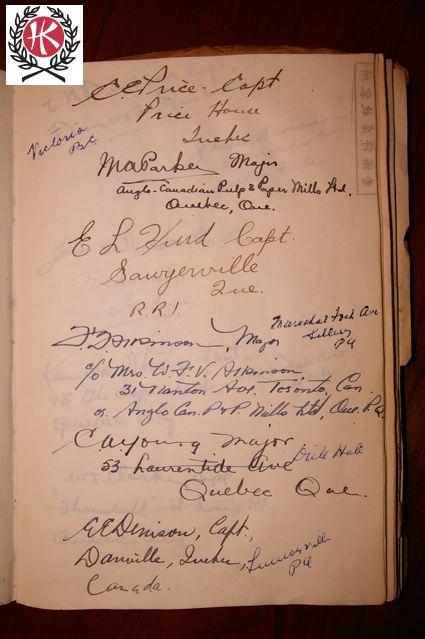 HK
C.E. Price - Capt
Price House
Quebec
Victoria
B.C.
M A Parker Major
Anglo-Canadian Pulp & Paper Mills Ltd.
Quebec, Que.
E L Hurd Capt.
Sawyerville
Que.
R.R.1.
Mareshal Foch Ave
Sillery
PQ
Atkinson, Major
c/o Mrs. W. F. V. Atkinson,
31 Ave. Toronto, Can.
or Anglo Can. P & P. Mills Ltd, Que. P.Q.
C A Young Major
53 Laurentide Ave
Quebec Que.
E E Denison, Capt.,
Danville, Quebec,
PQ
Canada.